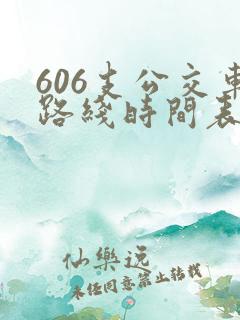 606支公交車
路綫時間表
仙樂説
未經同意禁止轉載